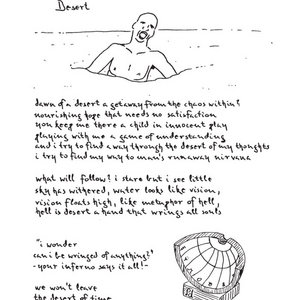 Desert
dawn of a desert a getaway from the chaos within?
nourishing hope that needs no satisfaction
you keep me there a child in innocent play
playing with me a game of understanding
and i try to find a way through the desert of my thoughts
i try to find my way to man's runaway nirvana
what will follow? i stare but i see little
sky has withered, water looks like vision,
vision floats high, like metaphor of hell,
hell is desert a hand that wrings all souls
"i wonder
can i be wringed of anything?"
-your inferno says it all!-
we won't leave
the desert of time